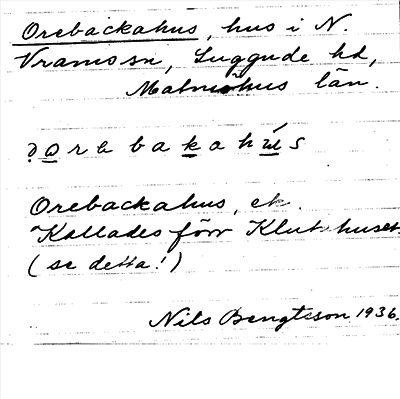 Orebackahus, hus i N.
Vrams sn, Luggude hd,
Malmöhus län.
Orebackahus, ek.
Kallades förr Klut-huset
(se detta!)
Nils Bengtsson 1936.